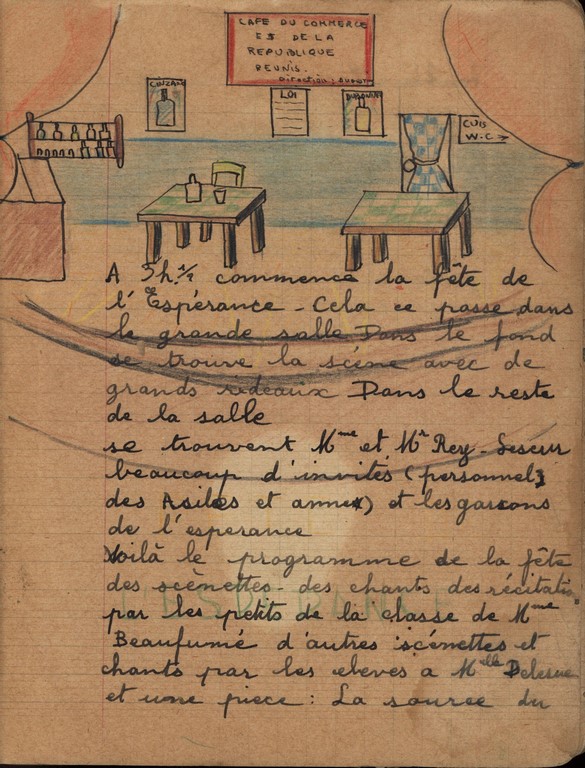 CAFE DU COMMERCE
ES DE LA
REPUBLIQUE
REUNIS.
Direction:
CINZANO
LOI
DUBONNET
CUIS
W.C→
A 5h.½ commence la fête de
l'Espérance - Cela ce passe dans
la grande salle Dans le fond
se trouve la scène avec de
grands rideaux Dans le reste
de la salle
se trouvent Mme et Mr Rey-
beaucoup d'invités (personnel
des Asiles et annex) et les garcons
de l'esperance
Voilà le programme de la fête
des scènettes - des chants des récitation
par les petits de la classe de Mme
Beaufumé d'autres scénettes et
chants par les eleves a Melle
et une piece : La source du